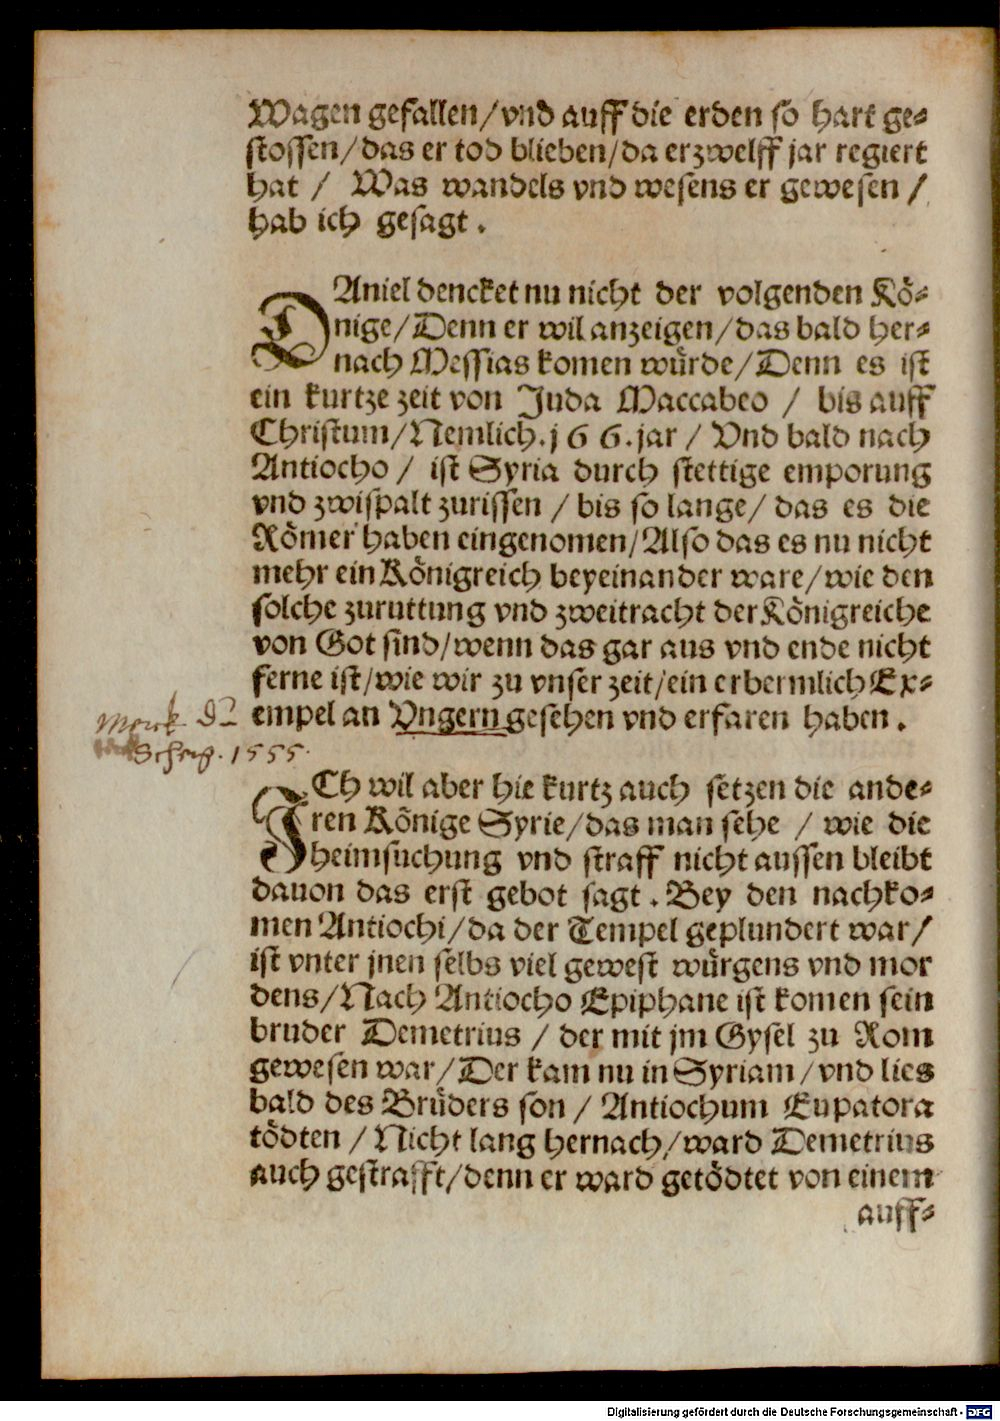 Wagen gefallen/vnd auff die erden so hart ge-
stossen/das er tod blieben/da er zwelff jar regiert
hat / Was wandels vnd wesens er gewesen /
hab ich gesagt.
DAniel dencket nu nicht der volgenden Kö-
nige/Denn er wil anzeigen/das bald her-
nach Messias komen würde/Denn es ist
ein kurtze zeit von Juda Maccabeo / bis auff
Christum/Nemlich.j66.jar / Vnd bald nach
Antiocho / ist Syria durch stettige emporung
vnd zwispalt zurissen / bis so lange/ das es die
Römer haben eingenomen/Also das es nu nicht
mehr ein Königreich beyeinander ware/wie den
solche zuruttung vnd zweitracht der Königreiche
von Got sind/wenn das gar aus vnd ende nicht
ferne ist/wie wir zu vnser zeit/ein erbermlich Ex-
empel an Vngern gesehen vnd erfaren haben.
Merck
1555.
ICh wil aber hie kurtz auch setzen die ande-
ren Könige Syrie/das man sehe / wie die
heimsuchung vnd straff nicht aussen bleibt
dauon das erst gebot sagt. Bey den nachko-
men Antiochi/da der Tempel geplundert war/
ist vnter jnen selbs viel gewest würgens vnd mor
dens/Nach Antiocho Epiphane ist komen sein
bruder Demetrius / der mit jm Gysel zu Rom
gewesen war/Der kam nu in Syriam/vnd lies
bald des Brüders son / Antiochum Eupatora
tödten / Nicht lang hernach/ward Demetrius
auch gestrafft/denn er ward getödtet von einem
auff-
Digitalisierung gefördert durch die Deutsche Forschungsgemeinschaft - DFG